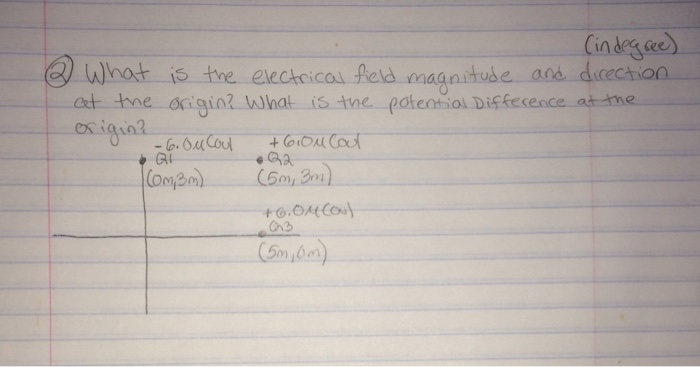 (in degree)
② What is the electrical field magnitude and direction
at the origin? What is the potential Difference at the
origin?
-6.0μCoul +6.0μCoul
Q1 Q2
(0m,3m) (5m, 3m)
+6.0μCoul
Q3
(5m, 0m)